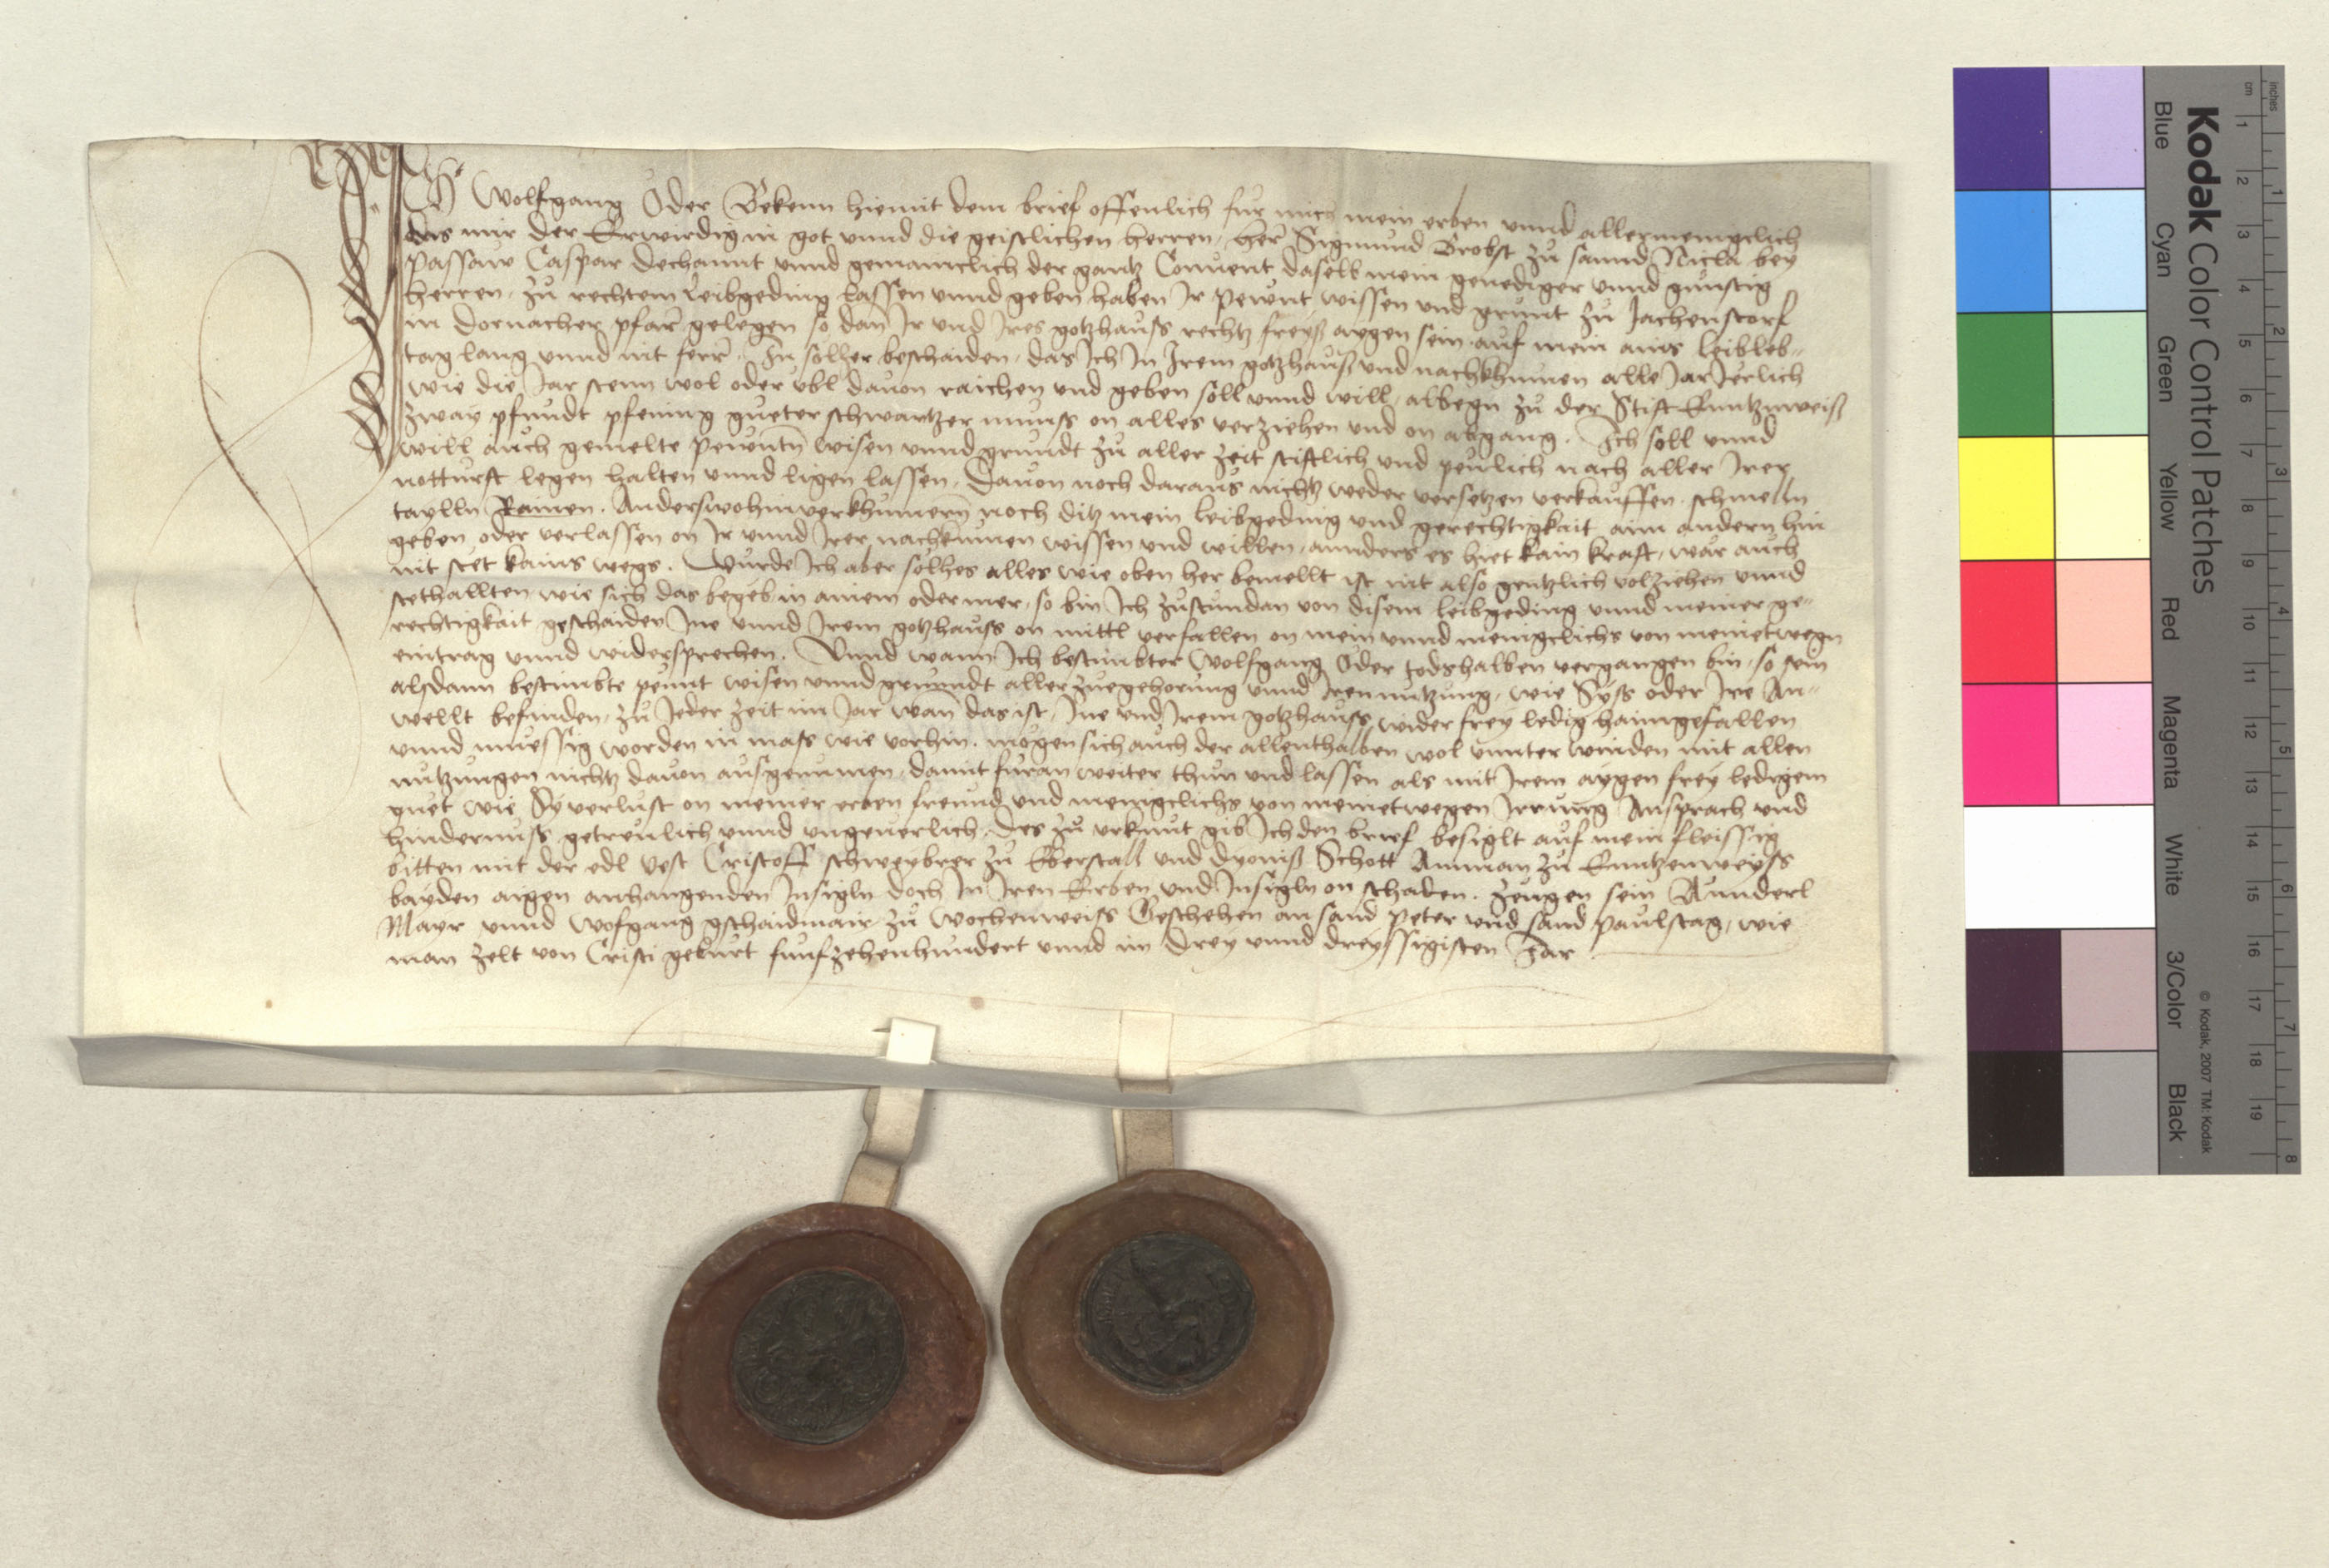 Ich Wolfgang Öder Bekenn hiemit dem brief offenlich fur mich mein erben unnd allermenigclich
das mir der Erwirdig in got unnd die geistlichen herren, her Sigmund Brobst zu sannd Nicla bey
Passaw Caspar dechannt unnd gemainclich der gantz Convent daselb mein genediger unnd gunstig
herren, zu rechtem leibgeding lassen unnd geben haben Ir pewnt wissen und grunt zu Jachenstorf
in dornacher pfarr gelegen so dan Ir und Ires gotzhauss rechtz freyß aygen sein auf mein ains leibleb-
tag lang unnd nit ferr. In solher beschaiden, das Ich In Irem gotzhauß und nachkhumen alle Jar Jerlich
wie die Jar stenn wol oder ubl davon raichen und geben soll unnd will, albegn zu der Stift Kuntznweiß
zway pfundt pfening gueter schwartzer munss on alles verziehen und on abgang. Ich soll unnd
will auch gemelte pewntn wisen unnd grundt zu aller zeit stiftlich und peulich nach aller Irer
notturft legen halten unnd ligen lassen, Davon noch daraus nichtz weder versetzen verkauffen schmelln
taylln Rainen. Anderswohin verkhumern noch ditz mein leibgeding und gerechtigkait aim andern hin
geben oder verlassen on Ir unnd Irer nachkumen wissen und willen, annders es hiet kain kraft, war auch
nit stet kains wegs. Wurde Ich aber solhes alles wie oben her bemellt ist nit also gentzlich volziehen unnd
stethallten, wie sich das begeb in ainem oder mer, so bin Ich zustundan von disem leibgeding unnd meiner ge-
rechtigkait geschaiden Ine unnd Irem gotzhauss on mittl verfallen on mein unnd menigclichs von meinetwegn
eintrag unnd widersprechen. Unnd wann Ich bestimbter Wolfgang Öder todshalben vergangen bin, so sein
alsdann bestimbte peunt wisen unnd grunndt aller zuegehorung unnd Iren nutzung, wie Syss oder Ire An-
wellt befinden, zu Jeder zeit im Jar wan das ist, Ine und Irem gotzhauss wider frey ledig haimgefallen
unnd muessig worden in mass wie vorhin. mogen sich auch der allenthalben wol unnter winden mit allen
nutzungen nichtz davon ausgenumen, damit furan weiter thun und lassen als mit Irem aygen frey ledigem
guet wie Sy verlust on meiner erben freund und menigclichs von meinetwegen Irrung Ansprach und
hindernuss getreulich unnd ungeverlich. Des zu urkunt gib Ich den brief besiglt auf mein fleissig
bitten mit der edl vest Cristoff schweybrer zu Eberstall und dyonisß Schott Amman zu Kuntzenweyss
bayden aigen anhangenden Insigln doch In Iren Erben und Insigln on schaden. Zeugen sein Annderl
Mayr unnd Wofgang gschaidmair zu Wochenweiss Geschehen an sand Peter und sand paulstag, wie
man zelt von Cristi geburt funfzehenhundert unnd im drey unnd dreyssigisten Jar
Kodak Color Control Patches
Blue Cyan Green Yellow Red Magenta White 3/Color Black
© Kodak, 2007 TM: Kodak
cm 1 2 3 4 5 6 7 8 9 10 11 12 13 14 15 16 17 18 19
inches 1 2 3 4 5 6 7 8